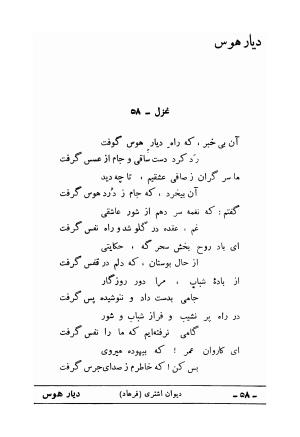 دیار هوس
غزل - ۵۸
آن بی خبر ، که راه دیار هوس گوفت
رد کرد دست ساقی و جام از عسس گرفت
ما سر گران ز صافی عشقیم ، تا چه دید
آن بیخرد ، که جام ز دُرد هوس گرفت
گفتم : که نغمه سر دهم از شور عاشقی
غم ، عقده در گلو شد و راه نفس گرفت
ای باد روح بخش سحر گه ، حکایتی
از حال بوستان ، که دلم در قفس گرفت
از بادهٔ شباب ، مرا دور روزگار
جامی بدست داد و ننوشیده پس گرفت
در راه پر نشیب و فراز شباب و شور
گامی نرفته‌ایم که ما را نفس گرفت
ای کاروان عمر ! که بیهوده میروی
بس کن ! که خاطرم ز صدای جرس گرفت
- ۵۸ -
دیوان اشتری (فرهاد)
دیار هوس